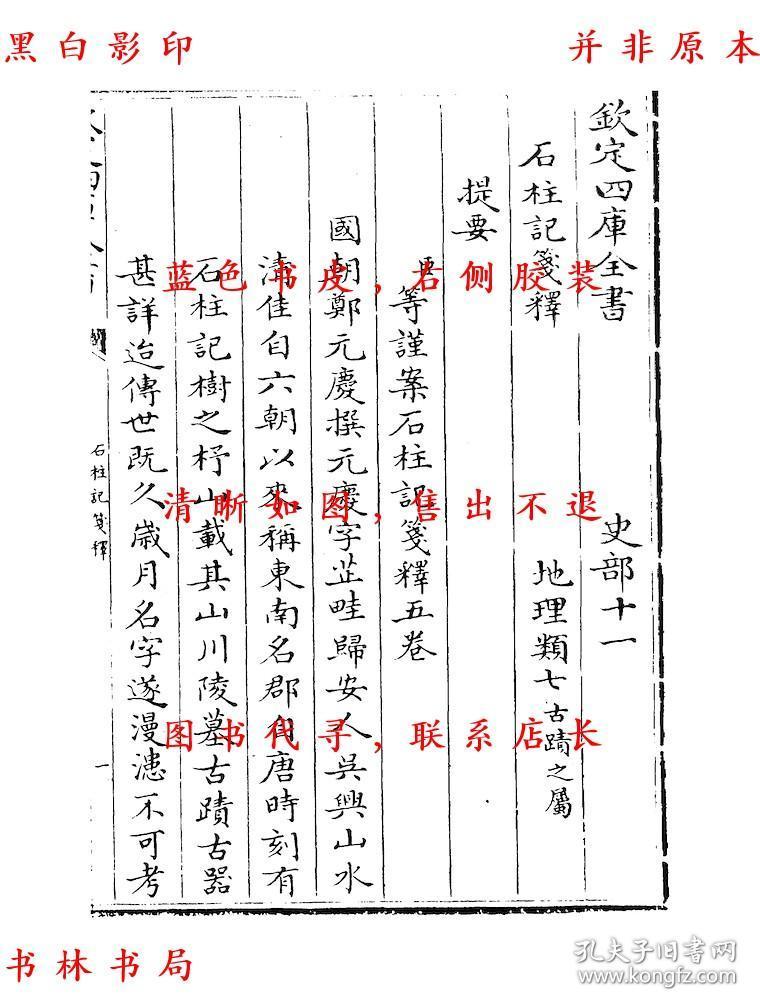 黑白影印
并非原本
欽定四庫全書
史部十一
石柱記箋釋
地理類七古蹟之屬
提要
臣等謹案石柱記箋釋五卷
國朝鄭元慶撰元慶字芷畦歸安人吳興山水
清佳自六朝以來稱東南名郡自唐時刻有
石柱記樹之杼山載其山川陵墓古蹟古器
甚詳迨傳世既久歳月名字遂漫漶不可考
石柱記箋釋
一
蓝色书皮,右侧胶装
清晰如图,售出不退
图书代寻,联系店长
书林书局
孔夫子旧书网
www.kongfz.com